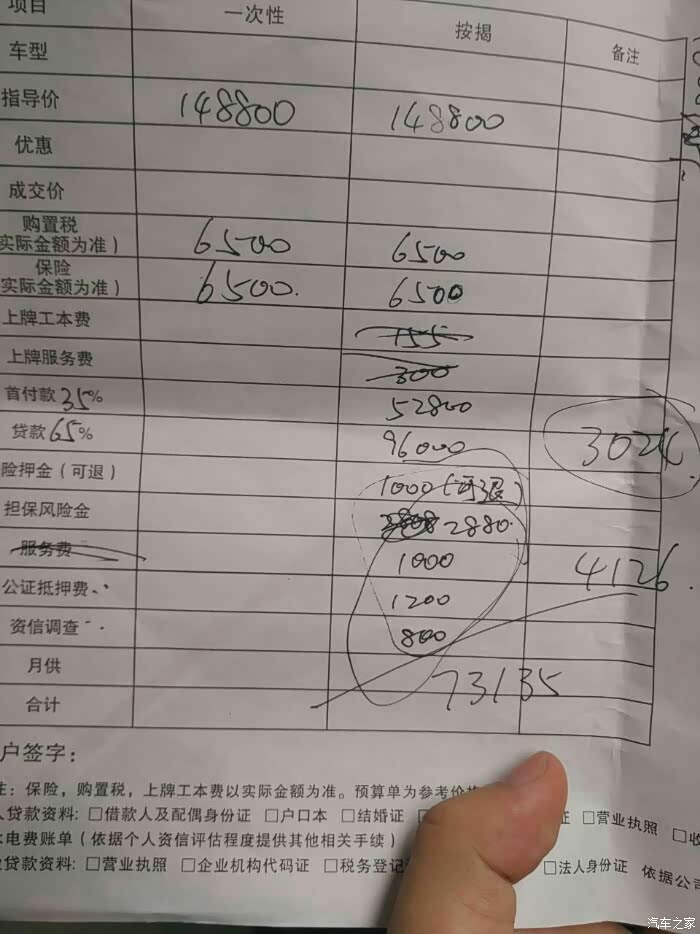 项目 一次性 按揭 备注
车型
指导价 148800 148800
优惠
成交价
购置税
实际金额为准） 6500 6500
保险
实际金额为准） 6500. 6500
上牌工本费 155
上牌服务费 300
首付款35% 52800
贷款65% 96000 302
险押金（可退） 1000（可退）
担保风险金 2880.
服务费 1000 4126.
公证抵押费 1200
资信调查 800
月供 73135
合计
户签字：
注：保险，购置税，上牌工本费以实际金额为准。预算单为参考价
人贷款资料：□借款人及配偶身份证 □户口本 □结婚证 证 □营业执照 □收
水电费账单（依据个人资信评估程度提供其他相关手续）
贷款资料：□营业执照 □企业机构代码证 □税务登记 □法人身份证 依据公司
汽车之家